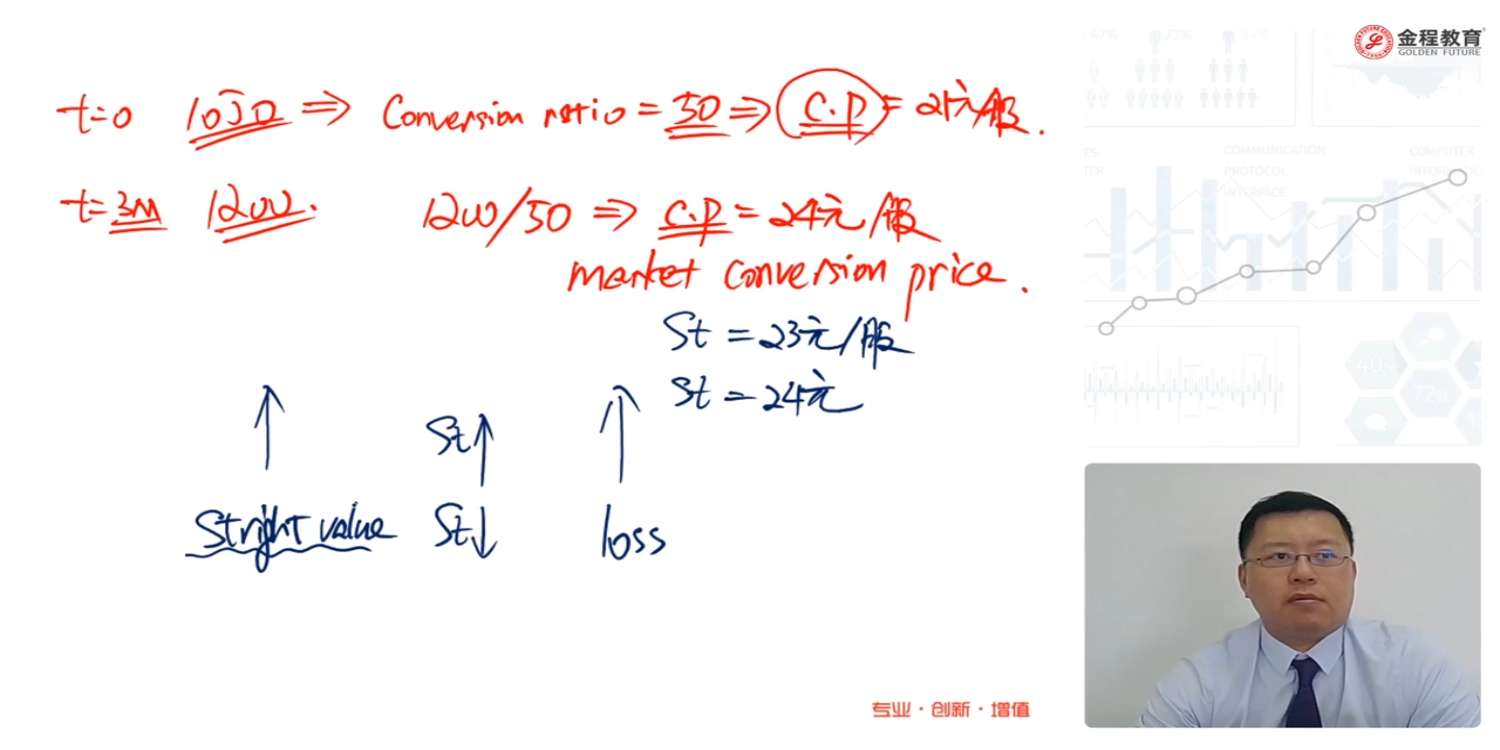 金程教育
GOLDEN FUTURE
t=0 1050 ⇒ Conversion ratio = 50 ⇒ C.P = 21元/股.
t=3M 1200. 1200/50 ⇒ C.P = 24元/股
market conversion price.
St = 23元/股
St = 24元
↑ St↑ ↑
Stright value St↓ loss
COMMUNICATION
PROTOCOL
INTERFACE
COMPUTER
专业·创新·增值